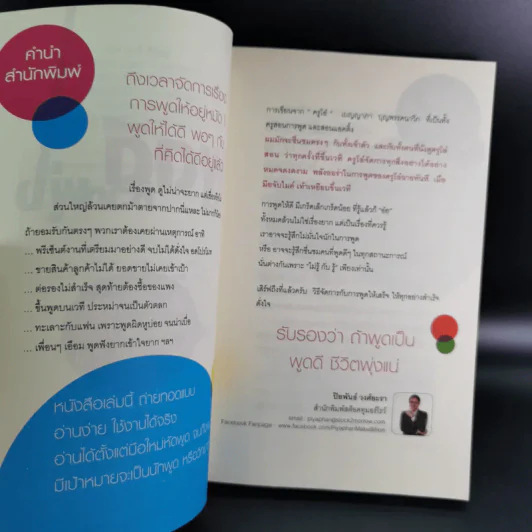 คำนำ
สำนักพิมพ์
ถึงเวลาจัดการเรื่อง
การพูดให้อยู่หมัด
พูดให้ได้ดี พอๆ กับ
ที่คิดได้ดีอยู่แล้ว
เรื่องพูด ดูไม่น่าจะยาก แต่เชื่อเถอะ
ส่วนใหญ่ล้วนเคยตกม้าตายจากปากนี่แหละ ไม่มากก็น้อย
ถ้ายอมรับกันตรงๆ พวกเราต้องเคยผ่านเหตุการณ์ อาทิ
... พรีเซ้นต์งานที่เตรียมมาอย่างดี จบไม่ได้ดั่งใจ
... ขายสินค้าลูกค้าไม่ได้ ยอดขายไม่เคยเข้าเป้า
... ต่อรองไม่สำเร็จ สุดท้ายต้องซื้อของแพง
... ขึ้นพูดบนเวที ประหม่าจนเป็นตัวตลก
... ทะเลาะกับแฟน เพราะพูดผิดหูบ่อย จนน่าเบื่อ
... เพื่อนๆ เอือม พูดฟังยากเข้าใจยาก ฯลฯ
หนังสือเล่มนี้ ถ่ายทอดแบบ
อ่านง่าย ใช้งานได้จริง
อ่านได้ตั้งแต่มือใหม่หัดพูด
มีเป้าหมายจะเป็นนักพูด
การเรียนจาก " ครูโอ๋ " เบญญาภา
ครูสอนการพูด และสอนแอคติ้ง
ผมมักจะชื่นชมตรงๆ กับทั้งเจ้าตัว และกับทั้งคนที่นั่งดูครูโอ๋
สอน ว่าทุกครั้งที่ขึ้นเวที ครูโอ๋จัดการทุกสิ่งอย่างได้อย่าง
หมดจดงดงาม พลังออร่าในการพูดของครูโอ๋ฉายทันที เมื่อ
มือจับไมค์ เท้าเหยียบขึ้นเวที
การพูดให้ดี มีเกร็ดเล็กเกร็ดน้อย ที่รู้แล้วก็ "อ๋อ"
ทั้งหมดล้วนไม่ใช่เรื่องยาก แต่เป็นเรื่องที่ควรรู้
เราอาจจะรู้สึกไม่มั่นใจนักในการพูด
หรือ อาจจะรู้สึกชื่นชมคนที่พูดดีๆ ในทุกสถานการณ์
นั่นต่างกันเพราะ "ไม่รู้ กับ รู้" เพียงเท่านั้น
เสิร์ฟถึงที่แล้วครับ วิธีจัดการกับการพูดให้เสร็จ ให้ทุกอย่างสำเร็จ
ดั่งใจ
รับรองว่า ถ้าพูดเป็น
พูดดี ชีวิตพุ่งแน่
ปิยพันธ์ วงศ์ยะรา